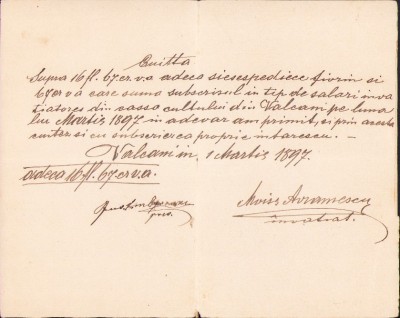 Cuitta
Supra 16 fl. 67 cr. v. a adeca siesespediece fiorin si
67 cr v a care suma subscrisul in tip de salari inva
tiatoresc din cassa cultului din Valcani pe luna
lui Martis 1897 in adevar am primit, si prin acesta
cuiter si cu subscrierea proprie intarescu. —
Valcani in, 1 Martis 1897.
adeca 16 fl. 67 cr v. a.
Moise Avramescu
invatiat.